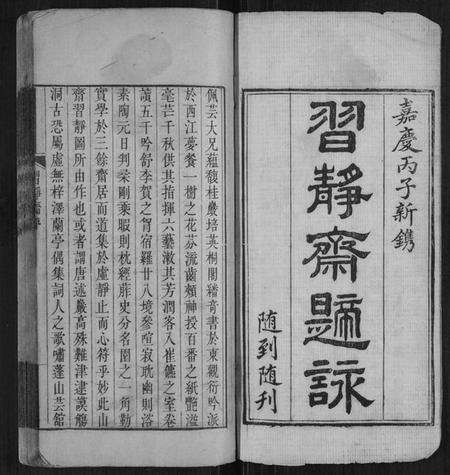 嘉慶丙子新鐫
習靜齋題詠
随到随刊
佩芸大兄蘊馥桂巖培英桐閣稽竒書於東觀衍吟派
於西江夢餐一樹之花芬流齒頰神授百番之紙艷溢
毫芒千秋供其指揮六藝漱其芳潤客入崔儦之室卷
讀五千吟舒李賀之胷宿羅廿八境參喧寂耽幽則浴
素陶元日判柔剛乘暇則枕經葄史分名園之一角勤
實學於三餘齋居而道集於虛靜止而心符乎妙此山
齋習靜圖所由作也或者謂唐述嚴高殊難津逮謨觴
洞古恐屬虛無梓澤蘭亭偶集詞人之歌嘯蓬山芸館